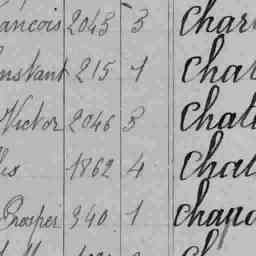 ançois 2045 3 Char
nstant 215 1 Chat
Victor 2046 3 Chat
les 1862 4 Chat
Prosper 340 1 Chau